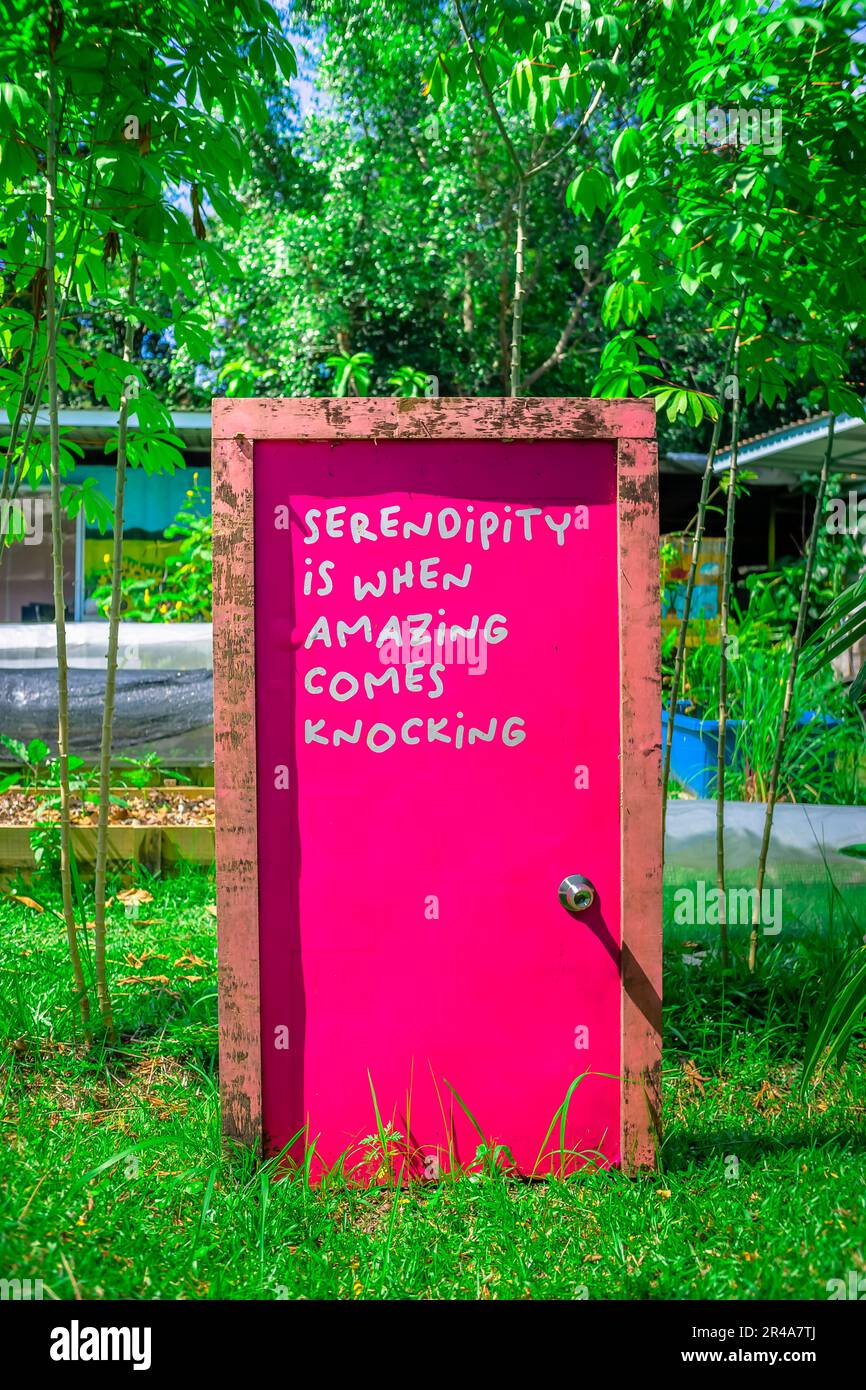 SERENDIPITY
IS WHEN
AMAZING
COMES
KNOCKING
alamy
Image ID: 2R4A7TJ
www.alamy.com